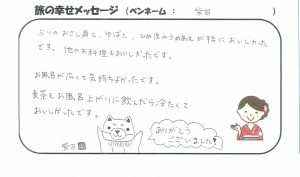 旅の幸せメッセージ（ペンネーム： 柴田 ）
ぶりのおさし身と、ゆばと、ひめ皮のうめあえが特においしかった
です。他のお料理もおいしかったです。
お風呂が広くて気持ちよかったです。
麦茶もお風呂上がりに飲んだら冷たくて
おいしかったです。
柴田
ありがとう
ございました!!